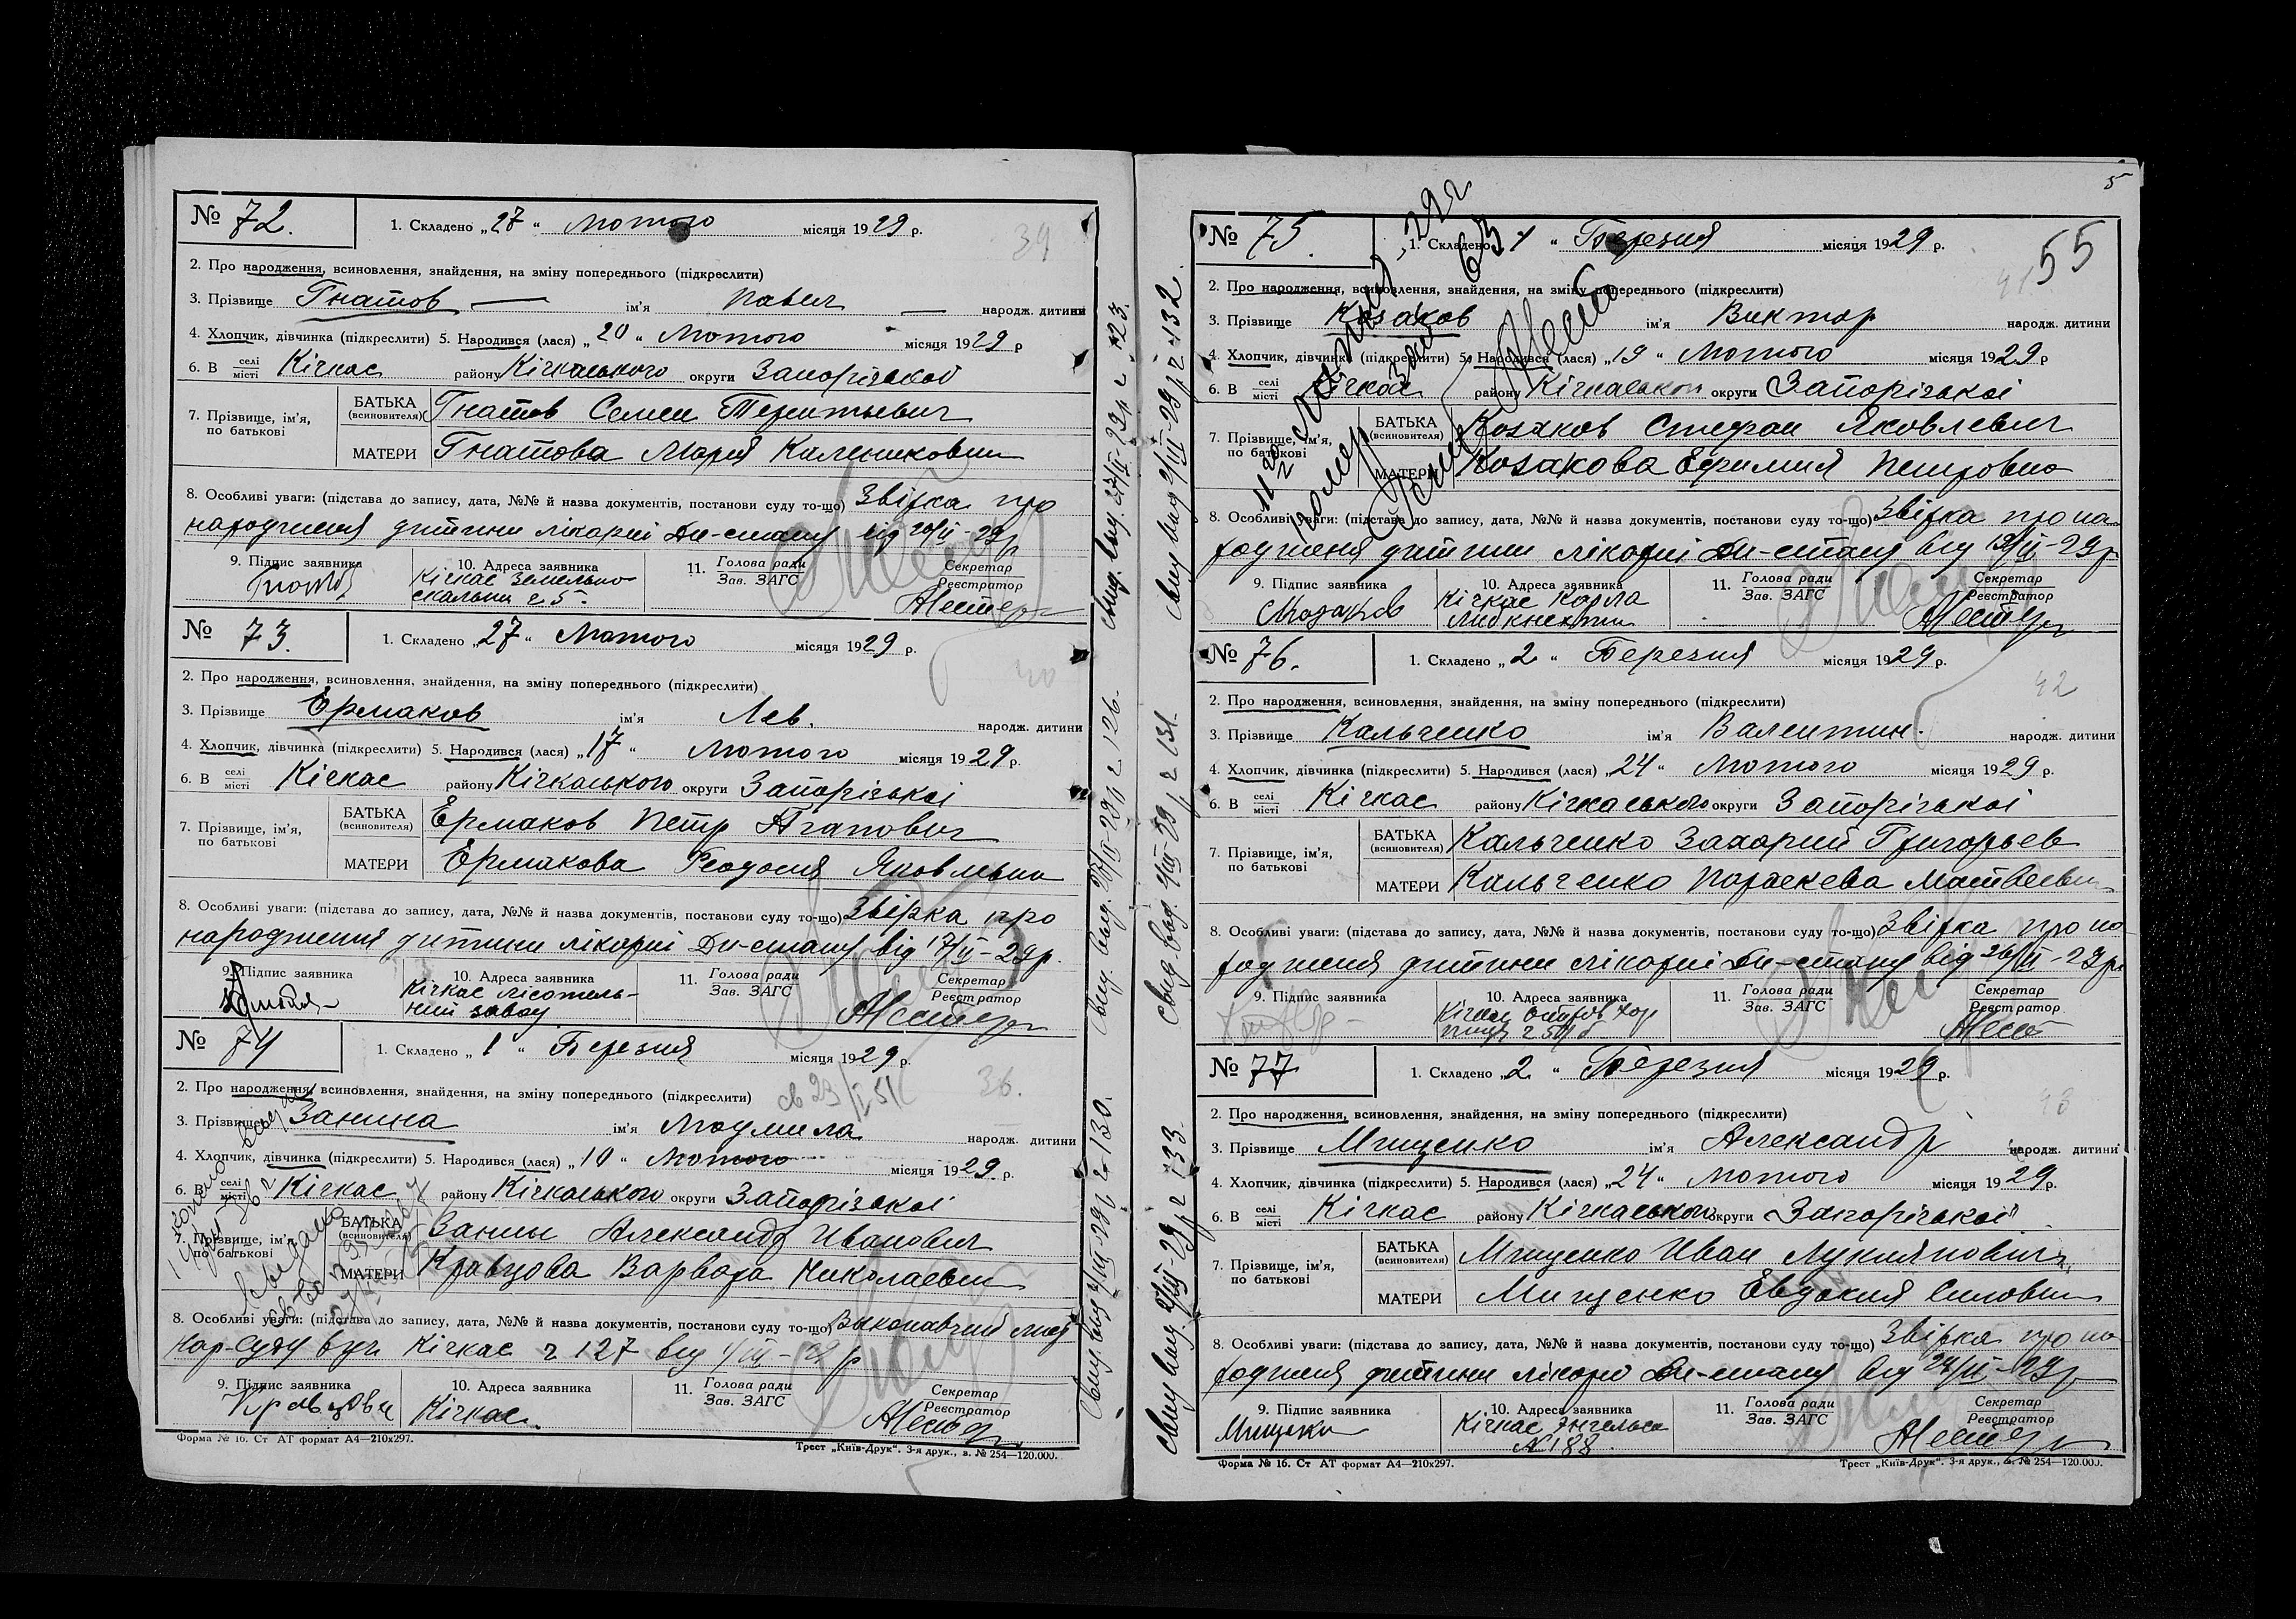 № 72. 1. Складено „27“ Лютого місяця 1929 р.
39
2. Про народження, всиновлення, знайдення, на зміну попереднього (підкреслити)
3. Прізвище Гнатов ім'я Павел народж. дитини
4. Хлопчик, дівчинка (підкреслити) 5. Народився (лася) „20“ Лютого місяця 1929 р
6. В селі місті Кічкас району Кічкаського округи Запорізькой
7. Прізвище, ім'я, по батькові БАТЬКА (всиновителя) Гнатов Семен Терентьевич
МАТЕРИ Гнатова Мария Калениковна
8. Особливі уваги: (підстава до запису, дата, №№ й назва документів, постанови суду то-що) Звірка про
народження дитини лікарні Дн-стану від 20/II-29р
9. Підпис заявника 10. Адреса заявника 11. Голова ради Зав. ЗАГС Секретар Реєстратор
Кічкас Земельно
скальна 25.
№ 73. 1. Складено „27“ Лютого місяця 1929 р.
40
2. Про народження, всиновлення, знайдення, на зміну попереднього (підкреслити)
3. Прізвище Ермаков ім'я Лев. народж. дитини
4. Хлопчик, дівчинка (підкреслити) 5. Народився (лася) „17“ Лютого місяця 1929 р.
6. В селі місті Кічкас району Кічкаського округи Запорізькоі
7. Прізвище, ім'я, по батькові БАТЬКА (всиновителя) Ермаков Петр Агапович
МАТЕРИ Ермакова Феодосия Яковлевна
8. Особливі уваги: (підстава до запису, дата, №№ й назва документів, постанови суду то-що) Звірка про
народження дитини лікарні Дн-стану від 17/II-29р.
9. Підпис заявника 10. Адреса заявника 11. Голова ради Зав. ЗАГС Секретар Реєстратор
Кічкас лісопиль-
ний завод
№ 74 1. Складено „1“ Березня місяця 1929 р.
36.
2. Про народження, всиновлення, знайдення, на зміну попереднього (підкреслити)
3. Прізвище Занина ім'я Людмила народж. дитини
4. Хлопчик, дівчинка (підкреслити) 5. Народився (лася) „10“ Лютого місяця 1929 р.
6. В селі місті Кічкас району Кічкаського округи Запорізькоі
7. Прізвище, ім'я, по батькові БАТЬКА (всиновителя) Занин Александр Иванович
МАТЕРИ Кравцова Варвара Николаевна
8. Особливі уваги: (підстава до запису, дата, №№ й назва документів, постанови суду то-що) Виконавчий лист
Нар-Суду Кічкас 2 127 від
9. Підпис заявника 10. Адреса заявника 11. Голова ради Зав. ЗАГС Секретар Реєстратор
Кравцова Кічкас
Форма № 16. Ст АТ формат А4—210х297. Трест „Київ-Друк“. 3-я друк., в. № 254—120.000.
5
№ 75. 1. Складено „1“ Березня місяця 1929 р.
55
41
2. Про народження, всиновлення, знайдення, на зміну попереднього (підкреслити)
3. Прізвище Козаков ім'я Виктор народж. дитини
4. Хлопчик, дівчинка (підкреслити) 5. Народився (лася) „19“ Лютого місяця 1929 р
6. В селі місті Кічкас району Кічкаськог округи Запорізькоі
7. Прізвище, ім'я, по батькові БАТЬКА (всиновителя) Козаков Стефан Яковлевич
МАТЕРИ Козакова Ефимия Петровна
8. Особливі уваги: (підстава до запису, дата, №№ й назва документів, постанови суду то-що) Звірка про на-
родженя дитини лікарні Дн-стану від 19/II-29р
9. Підпис заявника 10. Адреса заявника 11. Голова ради Зав. ЗАГС Секретар Реєстратор
Кічкас Карла
Либкнехта
№ 76. 1. Складено „2“ Березня місяця 1929 р.
42
2. Про народження, всиновлення, знайдення, на зміну попереднього (підкреслити)
3. Прізвище Кальченко ім'я Валентин. народж. дитини
4. Хлопчик, дівчинка (підкреслити) 5. Народився (лася) „24“ Лютого місяця 1929 р.
6. В селі місті Кічкас району Кічкаського округи Запорізькоі
7. Прізвище, ім'я, по батькові БАТЬКА (всиновителя) Кальченко Захарий Григорьев
МАТЕРИ Кальченко Параскева Матвеевна
8. Особливі уваги: (підстава до запису, дата, №№ й назва документів, постанови суду то-що) Звірка про на-
родженя дитини лікарні Дн-стану від 26/II-29р
9. Підпис заявника 10. Адреса заявника 11. Голова ради Зав. ЗАГС Секретар Реєстратор
№ 77 1. Складено „2“ Березня місяця 1929 р.
43
2. Про народження, всиновлення, знайдення, на зміну попереднього (підкреслити)
3. Прізвище Мищенко ім'я Александр народж. дитини
4. Хлопчик, дівчинка (підкреслити) 5. Народився (лася) „24“ Лютого місяця 1929 р.
6. В селі місті Кічкас району Кічкаського округи Запорізькоі
7. Прізвище, ім'я, по батькові БАТЬКА (всиновителя) Мищенко Иван Лукиянович
МАТЕРИ Мищенко Евдокия Силовна
8. Особливі уваги: (підстава до запису, дата, №№ й назва документів, постанови суду то-що) Звірка про на-
родженя дитини лікарні Дн-стану від 24/II-29р
9. Підпис заявника 10. Адреса заявника 11. Голова ради Зав. ЗАГС Секретар Реєстратор
Мищенко Кічкас Энгельса
№ 188.
Форма № 16. Ст АТ формат А4—210х297. Трест „Київ-Друк“. 3-я друк., в. № 254—120.000.